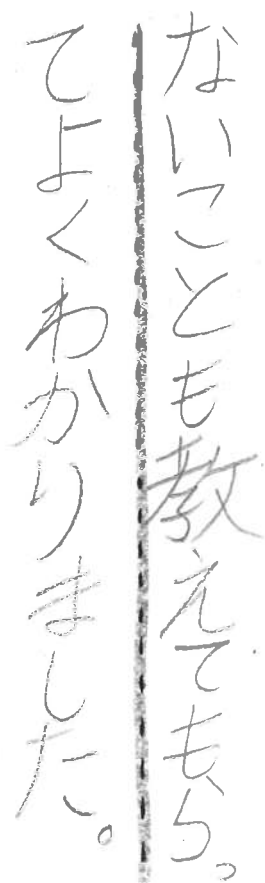 ないことも教えてもら。
てよくわかりました。